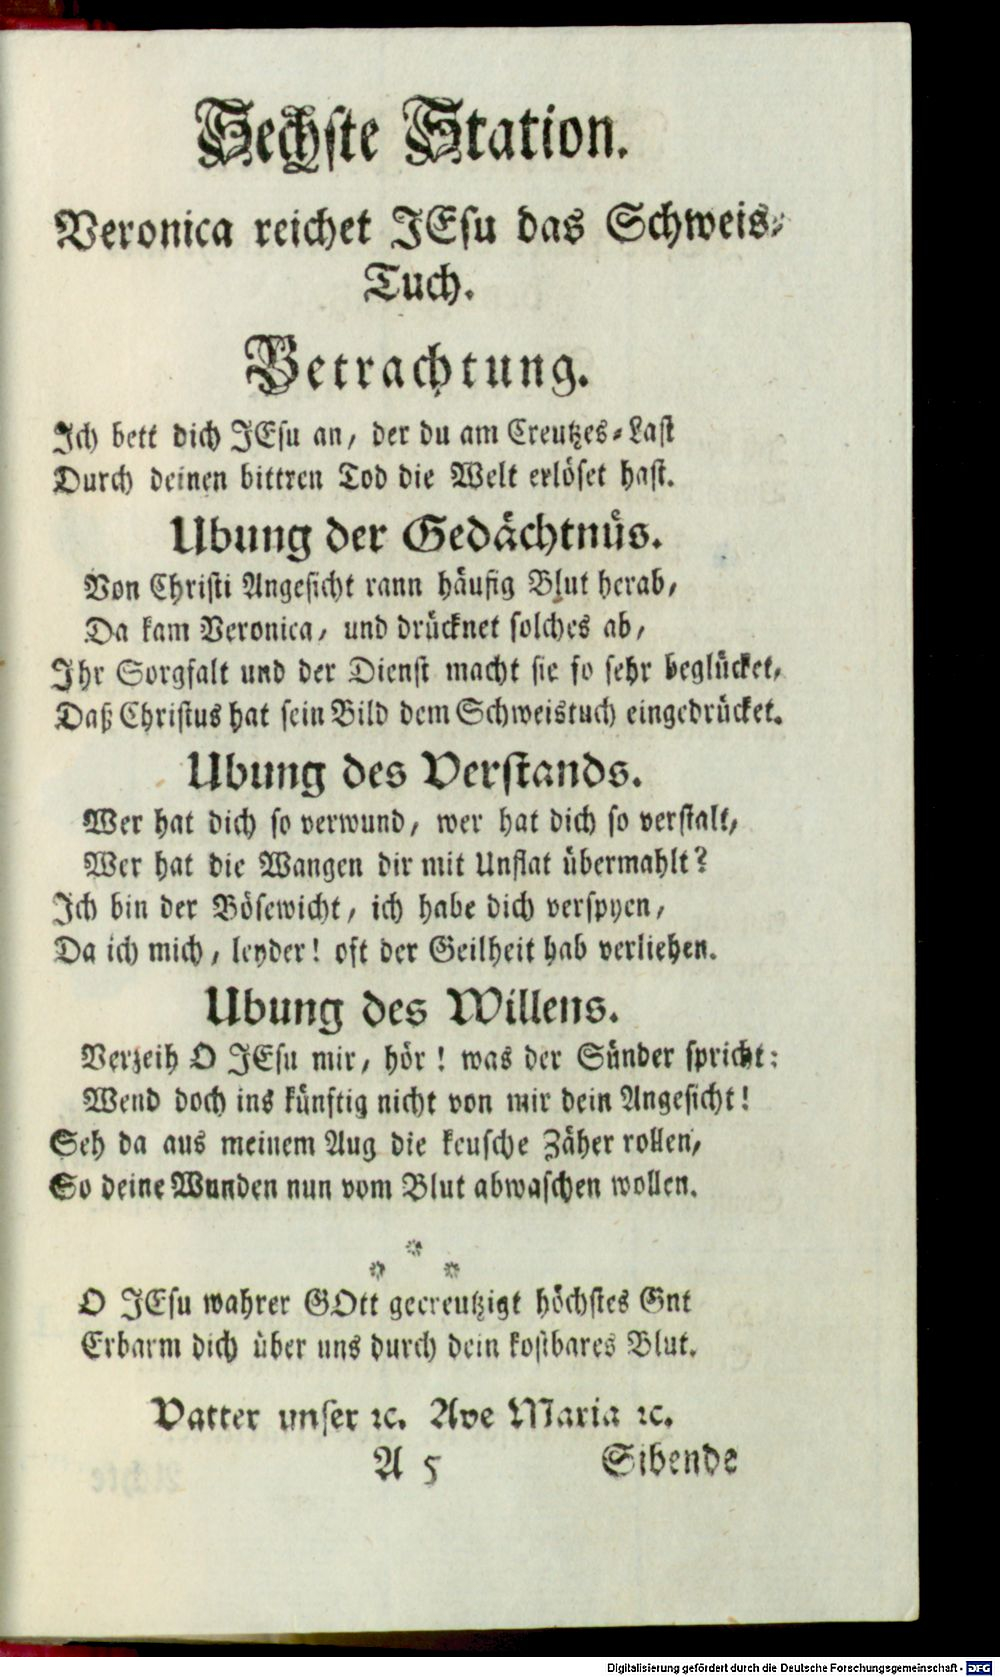 Sechste Station.
Veronica reichet JEsu das Schweis-
Tuch.
Betrachtung.
Ich bett dich JEsu an, der du am Creutzes-Last
Durch deinen bittren Tod die Welt erlöset hast.
Ubung der Gedächtnüs.
Von Christi Angesicht rann häufig Blut herab,
Da kam Veronica, und drücknet solches ab,
Ihr Sorgfalt und der Dienst macht sie so sehr beglücket,
Daß Christus hat sein Bild dem Schweistuch eingedrücket.
Ubung des Verstands.
Wer hat dich so verwund, wer hat dich so verstalt,
Wer hat die Wangen dir mit Unflat übermahlt?
Ich bin der Bösewicht, ich habe dich verspyen,
Da ich mich, leyder! oft der Geilheit hab verliehen.
Ubung des Willens.
Verzeih O JEsu mir, hör! was der Sünder spricht:
Wend doch ins künftig nicht von mir dein Angesicht!
Seh da aus meinem Aug die keusche Zäher rollen,
So deine Wunden nun vom Blut abwaschen wollen.
*
* *
O JEsu wahrer GOtt gecreutzigt höchstes Gut
Erbarm dich über uns durch dein kostbares Blut.
Vatter unser ꝛc. Ave Maria ꝛc.
A 5 Sibende
Digitalisierung gefördert durch die Deutsche Forschungsgemeinschaft - DFG